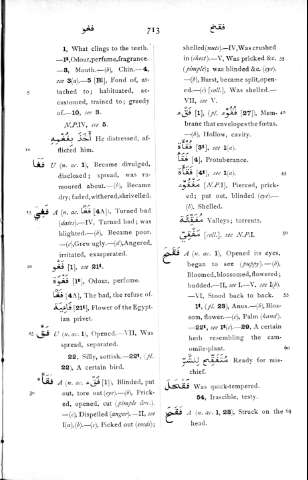 فغو
713
فقح
1, What clings to the teeth.
—1², Odour, perfume, fragrance.
—3, Mouth.—(b), Chin.—4,
see 3(a).—5 [II], Fond of, at-
tached to; habituated, ac-
customed, trained to; greedy
of.—10, see 3.
N.P.IV, see 5.
He distressed, af-
flicted him.
فَغَا U (n. ac. 1), Became divulged,
disclosed; spread, was ru-
moured about.—(b), Became
dry; faded, withered, shrivelled.
A (n. ac. [4A]), Turned bad
(dates).—IV, Turned bad; was
blighted.—(b), Became poor.
—(c), Grew ugly.—(d), Angered,
irritated, exasperated.
فَغْو [1], see 21¹.
فَغْوَة [1¹], Odour, perfume.
فَغَا [4A], The bad, the refuse of.
فَاغِيَة [21¹], Flower of the Egypt-
ian privet.
U (n. ac. 1), Opened.—VII, Was
spread, separated.
22, Silly, sottish.—22¹, (pl.
22), A certain bird.
فَقَأَ A (n. ac. [1]), Blinded, put
out, tore out (eye).—(b), Prick-
ed, opened, cut (pimple &c.).
—(c), Dispelled (anger).—II, see
I(a), (b).—(c), Picked out (seeds);
shelled (nuts).—IV, Was crushed
in (chest).—V, Was pricked &c.
(pimple); was blinded &c. (eye).
—(b), Burst, became split, open-
ed.—(c) [coll.], Was shelled.—
VII, see V.
[1], (pl. [27]), Mem-
brane that envelopes the fœtus.
—(b), Hollow, cavity.
[3¹], see 1(a).
[4], Protuberance.
[4¹], see 1(a).
[N.P.I], Pierced, prick-
ed; put out, blinded (eye).—
(b), Shelled.
Valleys; torrents.
[coll.], see N.P.I.
فَقَحَ A (n. ac. 1), Opened its eyes,
began to see (puppy).—(b),
Bloomed, blossomed, flowered;
budded.—II, see I.—V, see I(b).
—VI, Stood back to back.
1¹, (pl. 23), Anus.—(b), Blos-
som, flower.—(c), Palm (hand).
—22¹, see 1¹(c).—29, A certain
herb resembling the cam-
omile-plant.
Ready for mis-
chief.
Was quick-tempered.
54, Irascible, testy.
A (n. ac. 1, 23), Struck on the
head.